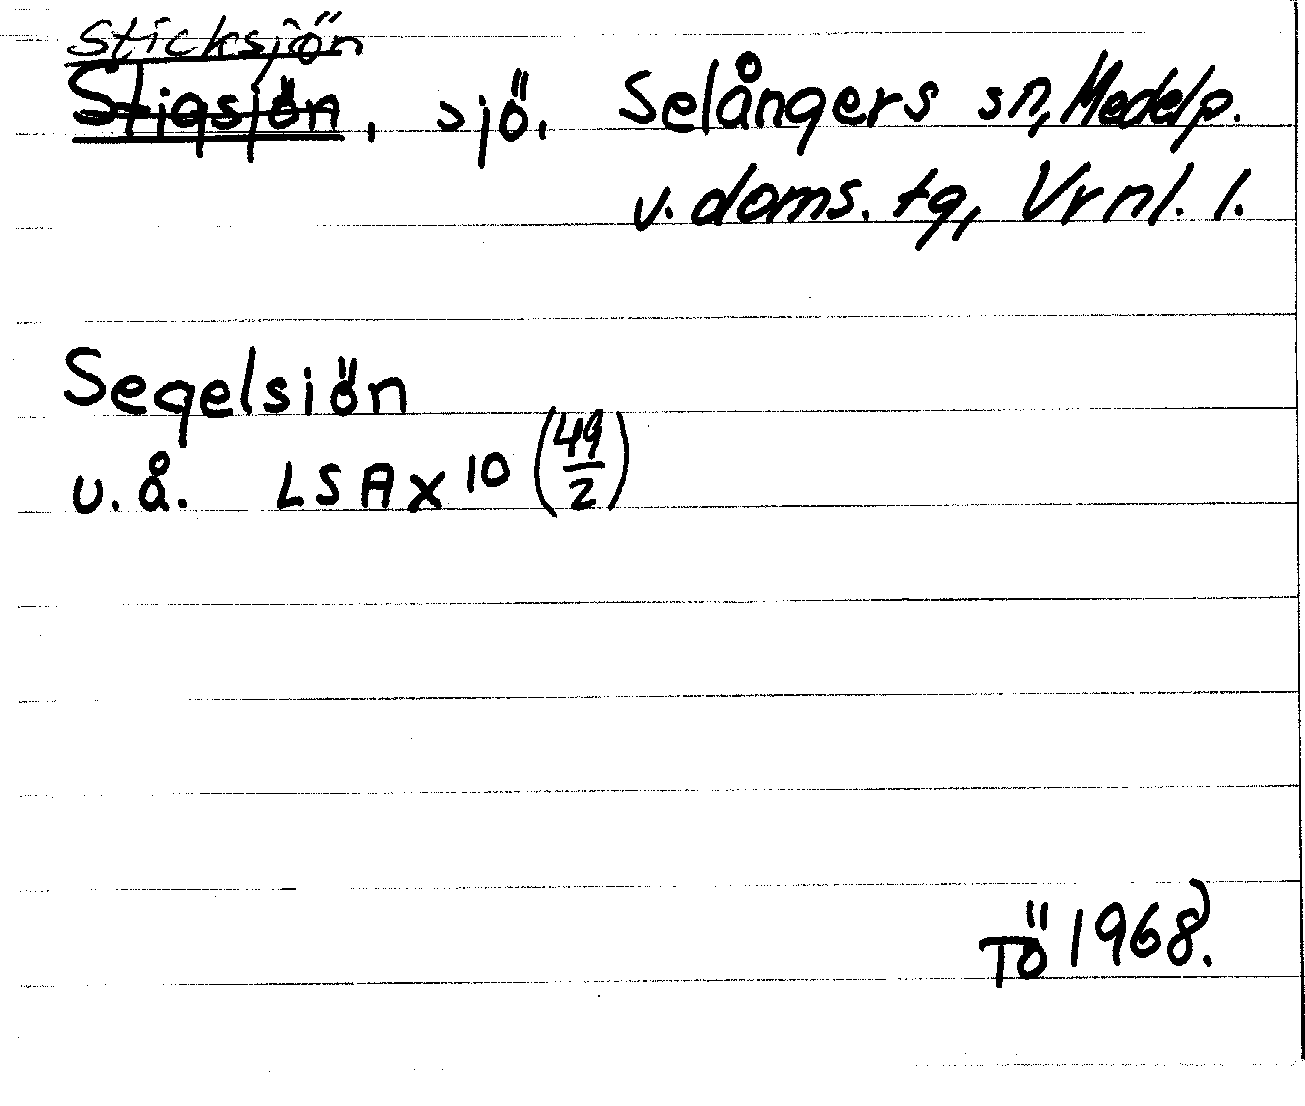 Sticksjön
Stigsjön, sjö. Selångers sn, Medelp.
v. doms. tg, Vrnl. l.
Segelsiön
u. å. LSA X 10 (49/2)
TÖ 1968.